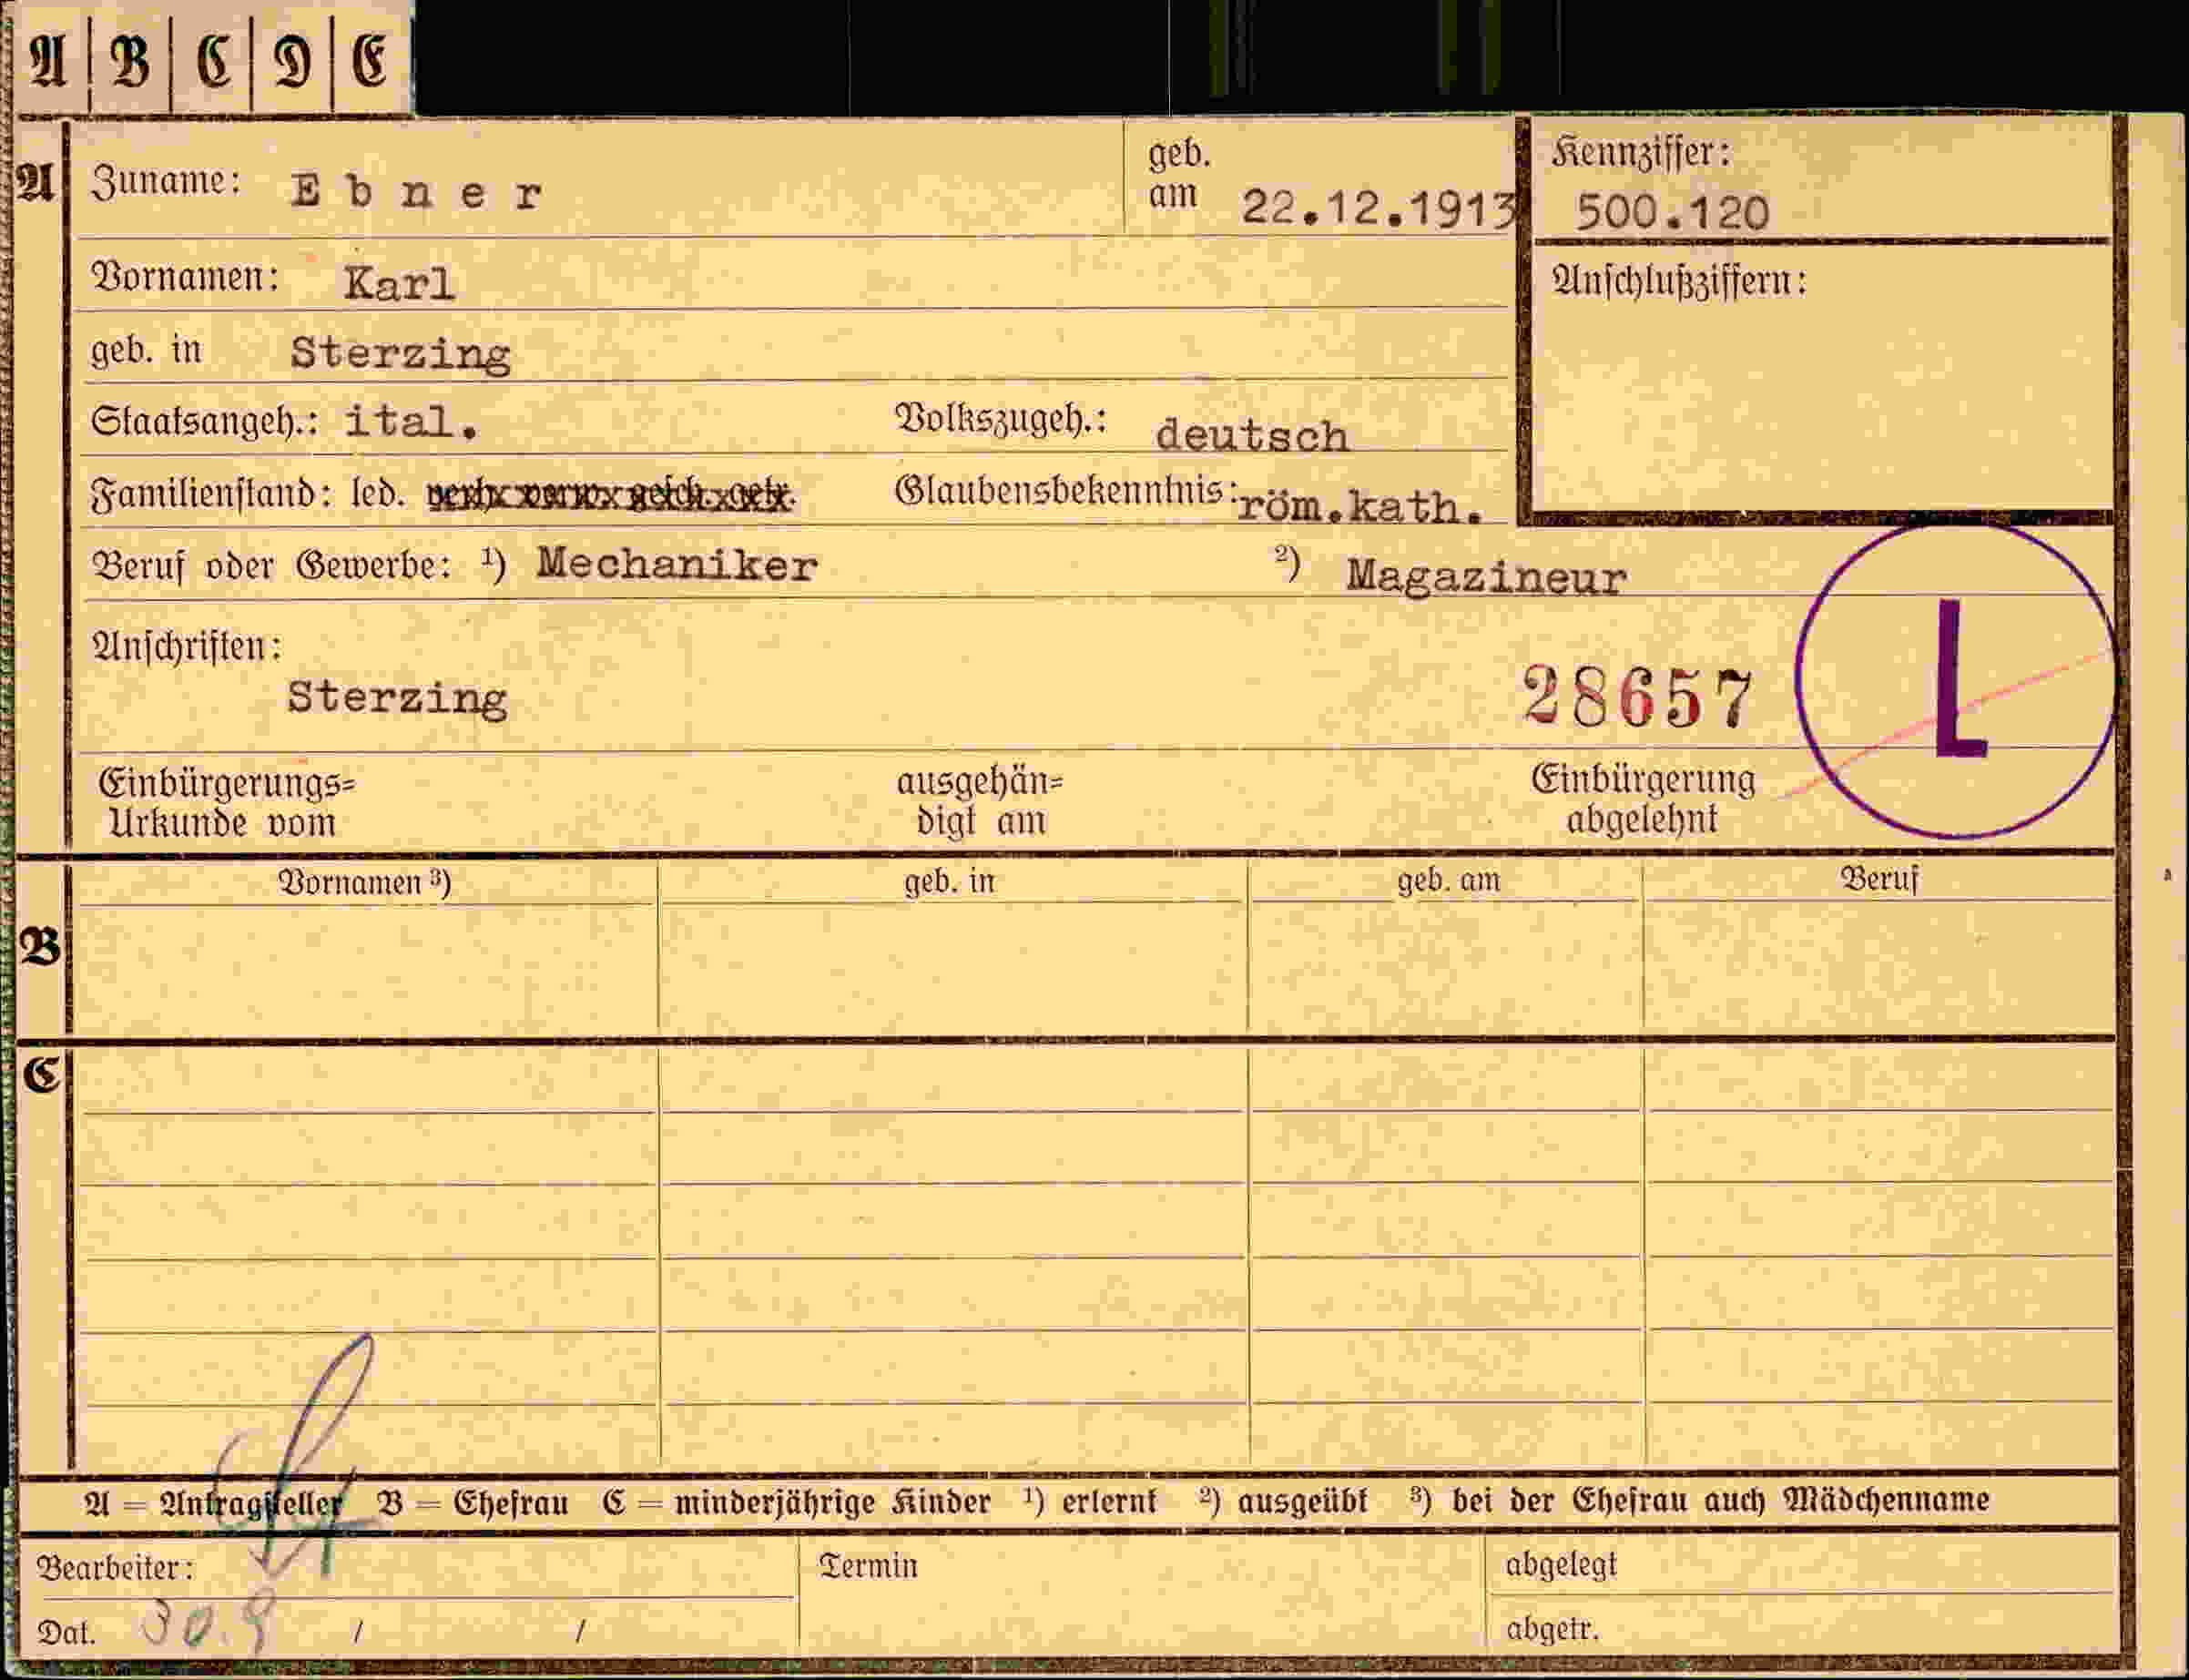 A B C D E
A Zuname: Ebner geb. am 22.12.1913 Kennziffer: 500.120
Vornamen: Karl Anschlußziffern:
geb. in Sterzing
Staatsangeh.: ital. Volkszugeh.: deutsch
Familienstand: led. verh. verw. gesch. getr. Glaubensbekenntnis: röm.kath.
Beruf oder Gewerbe: ¹) Mechaniker ²) Magazineur
Anschriften:
Sterzing 28657 L
Einbürgerungs= ausgehän= Einbürgerung
Urkunde vom digt am abgelehnt
B Vornamen ³) geb. in geb. am Beruf
C
A = Antragsteller B = Ehefrau C = minderjährige Kinder ¹) erlernt ²) ausgeübt ³) bei der Ehefrau auch Mädchenname
Bearbeiter: Termin abgelegt
Dat. 30.9 / / abgetr.